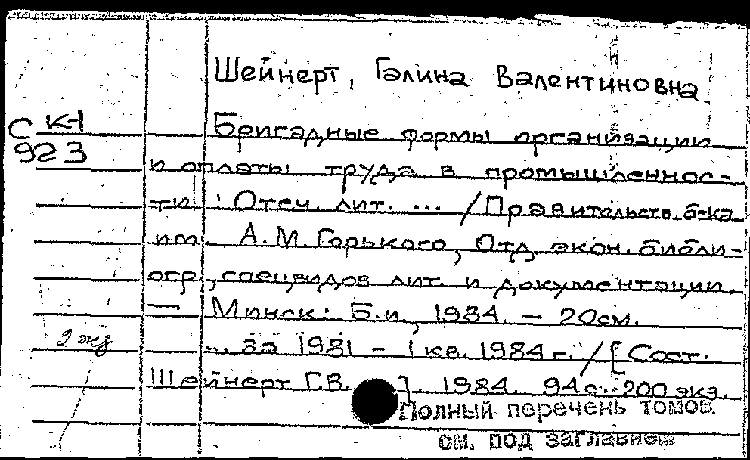 Шейнерт, Галина Валентиновна
С К-1
923
Бригадные формы организации
и оплаты труда в промышленнос-
ти : Отеч. лит. ... / Правительств. б-ка
им. А.М. Горького, Отд. экон. библи-
огр., спецвидов лит. и документации.
— Минск : Б.и., 1984. — 20см.
... за 1981 – I кв. 1984 г. / [Сост.
Шейнерт Г.В. ]. 1984. 94 с. 200 экз.
2 экз
Полный перечень томов
см. под заглавием